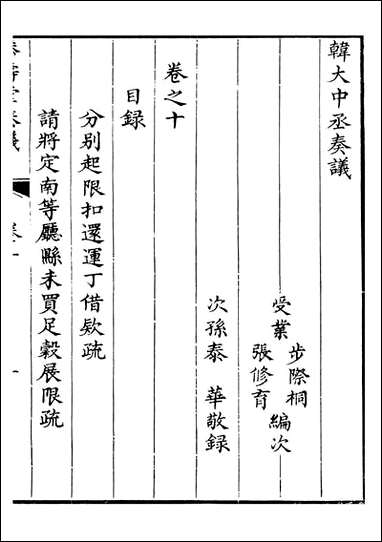 韓大中丞奏議
受業
步際桐
張修育
編次
次孫泰華敬録
卷之十
目録
分别起限扣還運丁借欵疏
請將定南等廳縣未買足穀展限疏